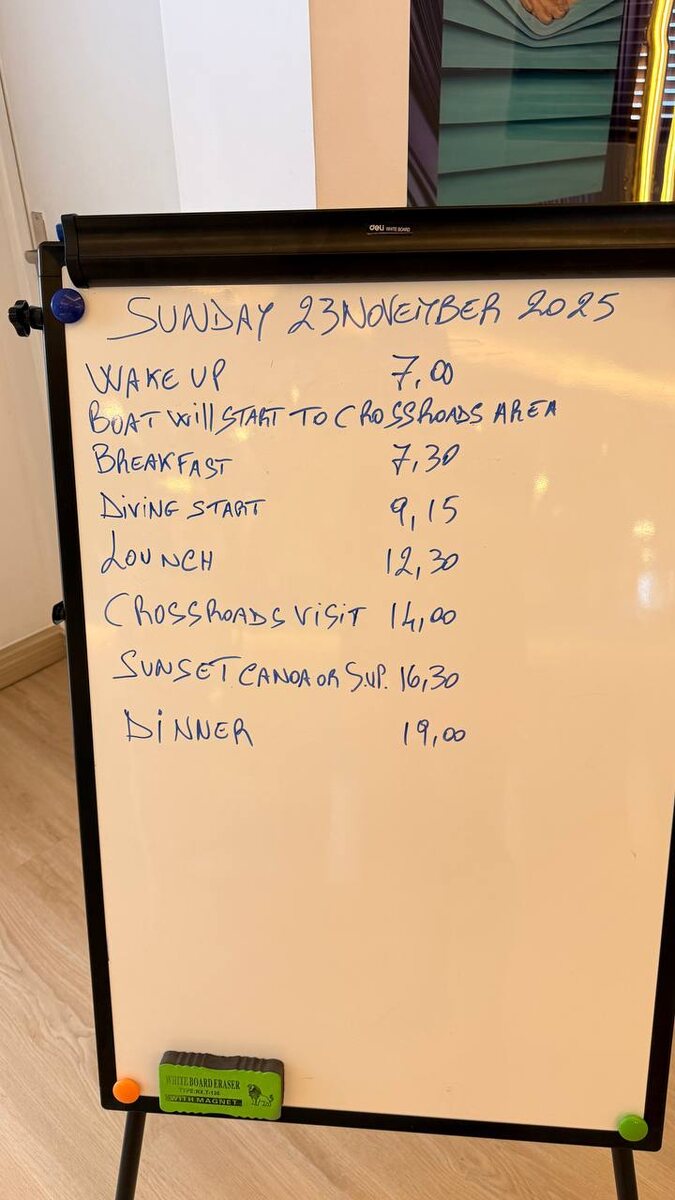 deli WHITE BOARD
SUNDAY 23 NOVEMBER 2025
WAKE UP 7,00
BOAT Will START TO CROSSROADS AREA
BREAKFAST 7,30
DIVING START 9,15
LOUNCH 12,30
CROSSROADS VISIT 14,00
SUNSET CANOA OR S.UP. 16,30
DINNER 19,00
WHITE BOARD ERASER
WITH MAGNET